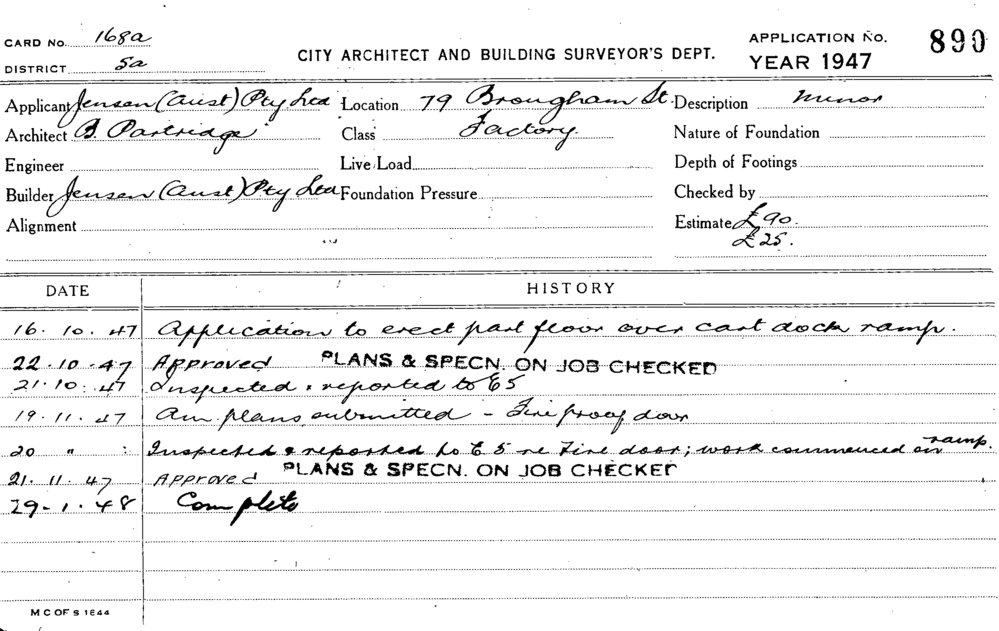 CARD No. 168a
DISTRICT 5a
CITY ARCHITECT AND BUILDING SURVEYOR'S DEPT.
APPLICATION No. 890
YEAR 1947
Applicant Jensen (Aust) Pty Ltd Location 79 Brougham St. Description Minor
Architect B. Partridge Class Factory. Nature of Foundation
Engineer Live Load Depth of Footings
Builder Jensen (Aust) Pty Ltd Foundation Pressure Checked by
Alignment Estimate £90.
£25.
DATE HISTORY
16. 10. 47 Application to erect part floor over cart dock ramp.
22.10.47 Approved PLANS & SPECN. ON JOB CHECKED
21.10.47 Inspected & reported to E5
19.11.47 Am. plans submitted - Fire proof door
20 " : Inspected & reported to E5 re Fire door; work commenced on ramp.
21.11.47 Approved PLANS & SPECN. ON JOB CHECKED
29-1.48 Complete
M C OF S 1644